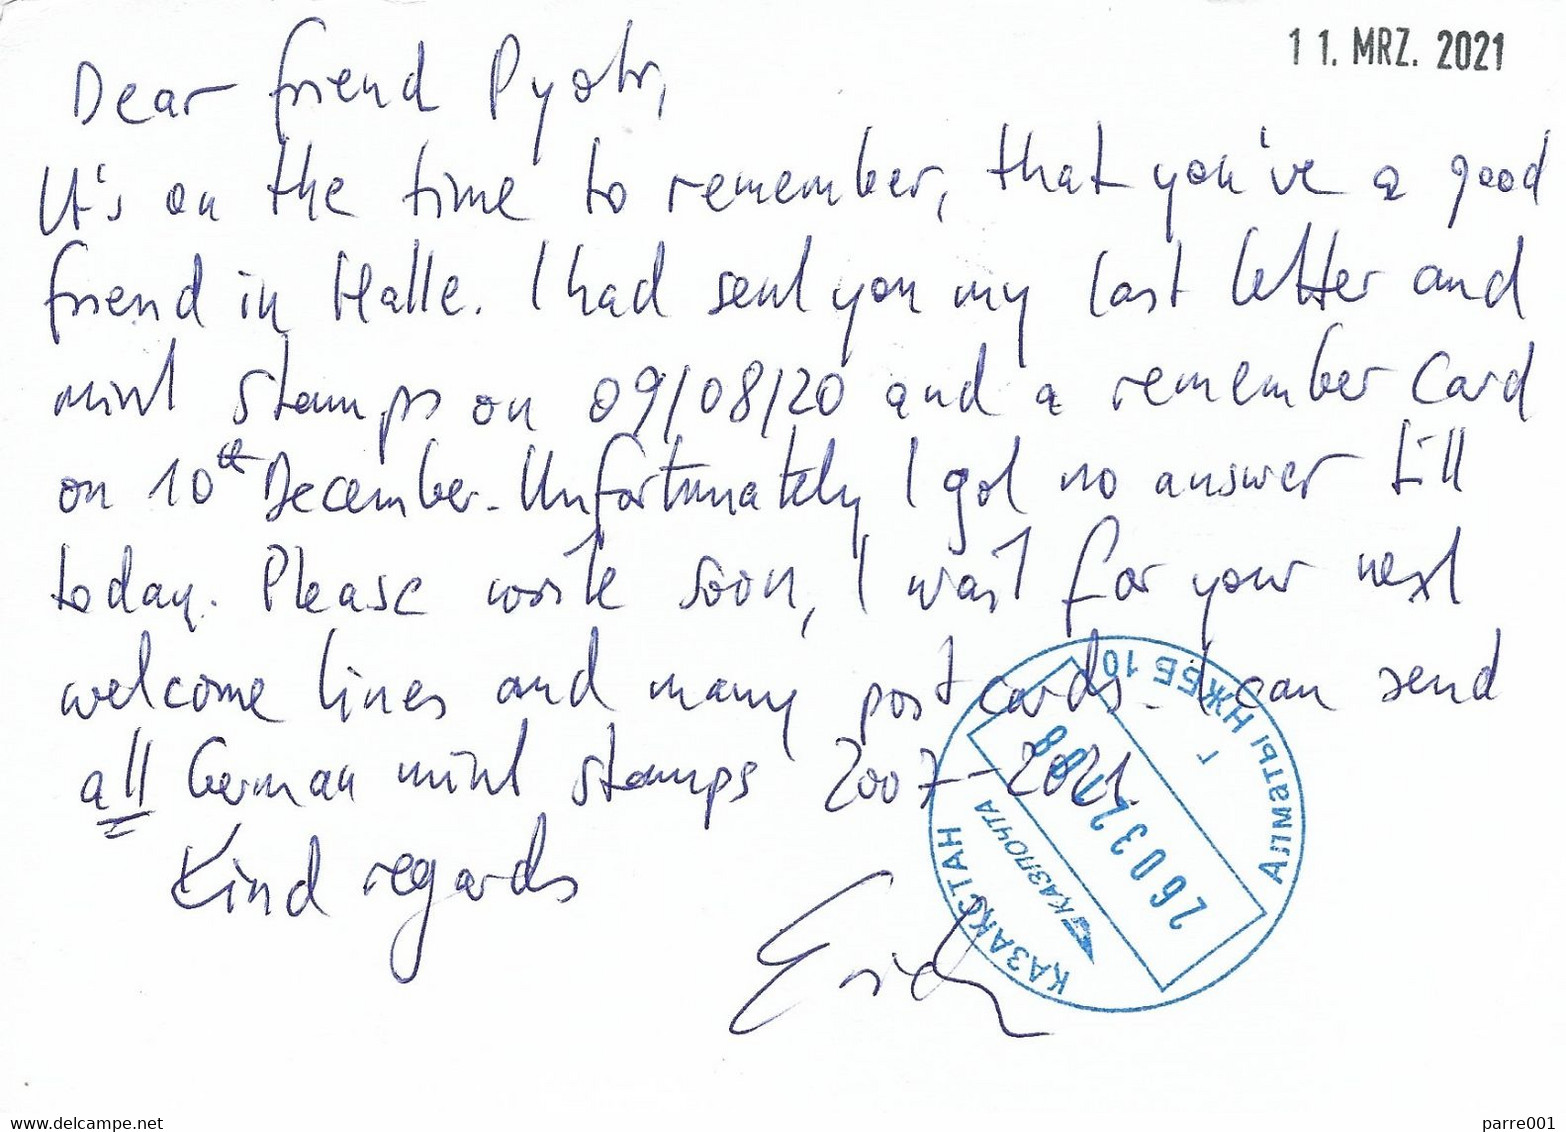 11. MRZ. 2021
Dear friend Pyotr,
It's on the time to remember, that you've a good
friend in Halle. I had sent you my last letter and
mint stamps on 09/08/20 and a remember Card
on 10th December. Unfortunately I got no answer till
today. Please write soon, I wait for your next
welcome lines and many postcards. I can send
all German mint stamps 2007-2021
Kind regards
Erich
ҚАЗАҚСТАН
ҚАЗПОЧТА
260321 08
Г АЛМАТЫ НЖББ 10
www.delcampe.net
parre001